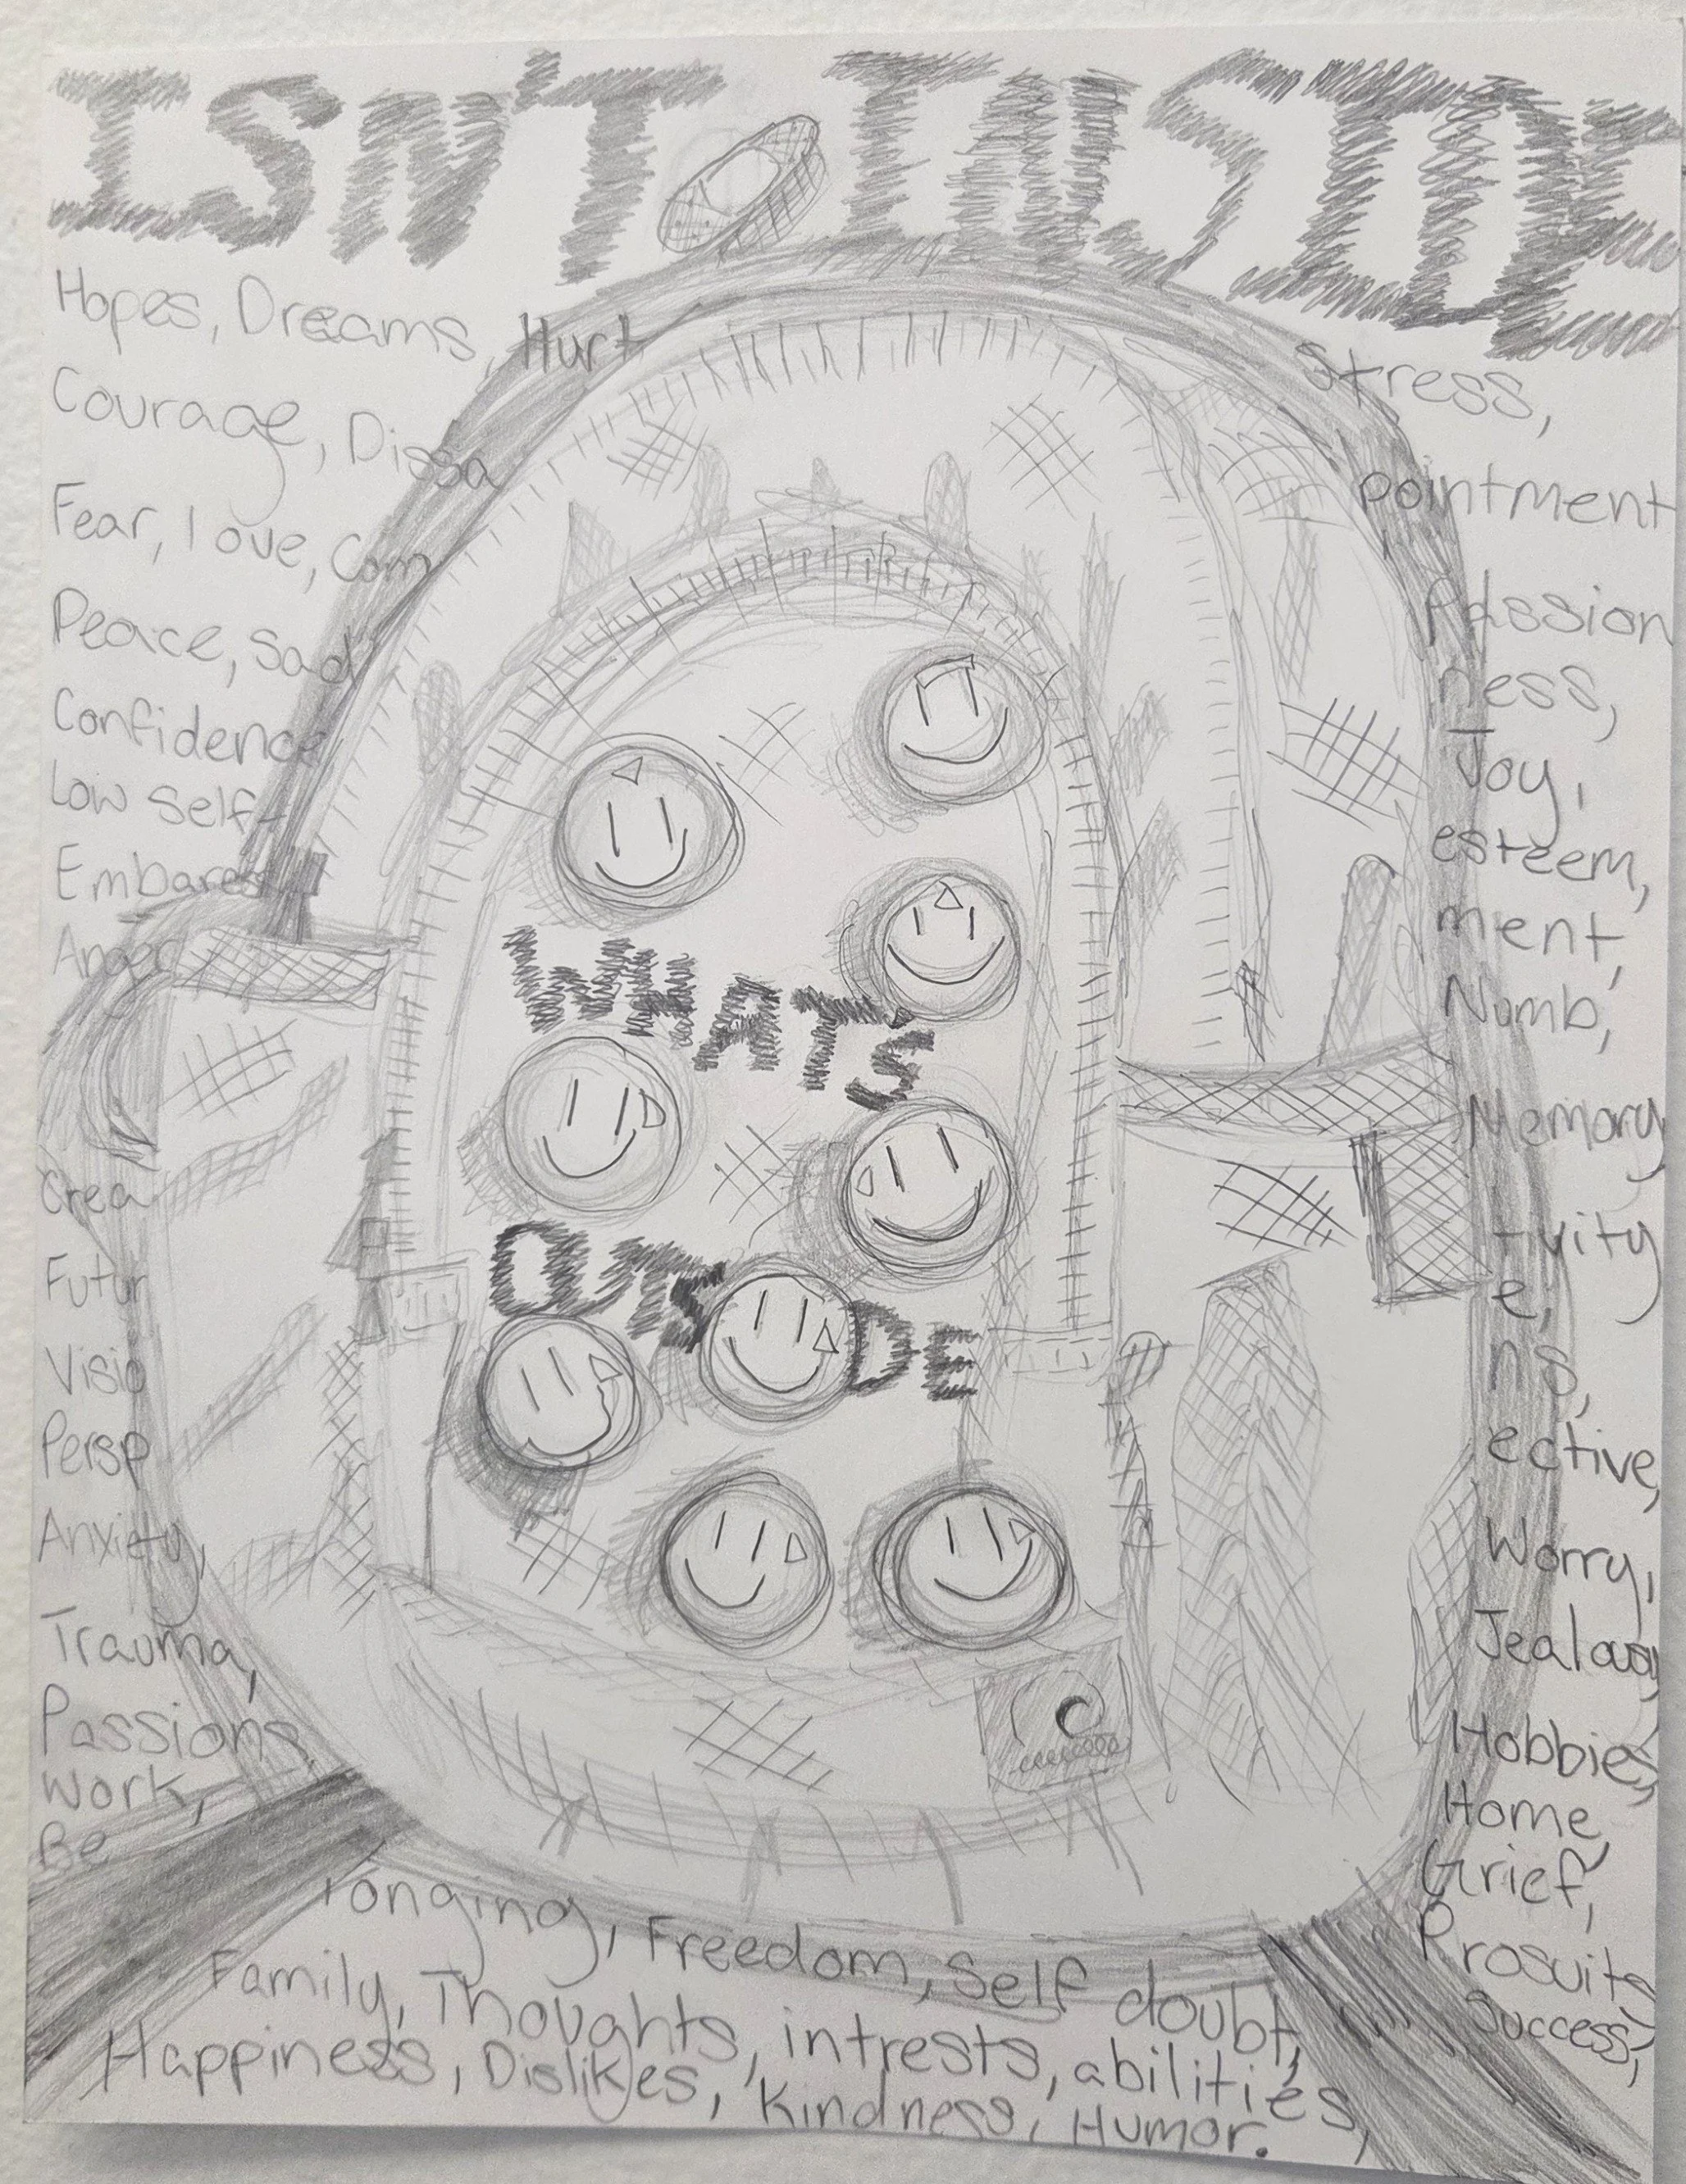 ISN'T INSIDE
Hopes, Dreams, Hurt Stress,
Courage, Dissa pointment
Fear, Love, Com Passion
Peace, Sad ness,
Confidence Joy,
Low self- esteem,
Embares ment,
Anger Numb,
WHAT'S
Memory,
Crea tivity
OUTSIDE
Futur e,
Visio ns,
Persp ective,
Anxiety, Worry,
Trauma, Jealousy
Passions, Hobbies,
Work, Home,
Be Grief,
longing, Freedom, Self doubt, Prosuits
Family, Thoughts, intrests, abilities, Success,
Happiness, Dislikes, Kindness, Humor.